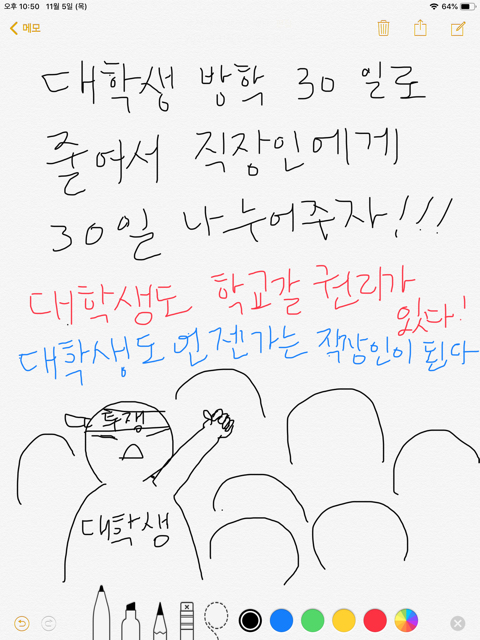 오후 10:50 11월 5일 (목)
64%
메모
대학생 방학 30일로
줄여서 직장인에게
30일 나누어주자!!!
대학생도 학교갈 권리가
있다!
대학생도 언젠가는 직장인이 된다
투쟁
대학생